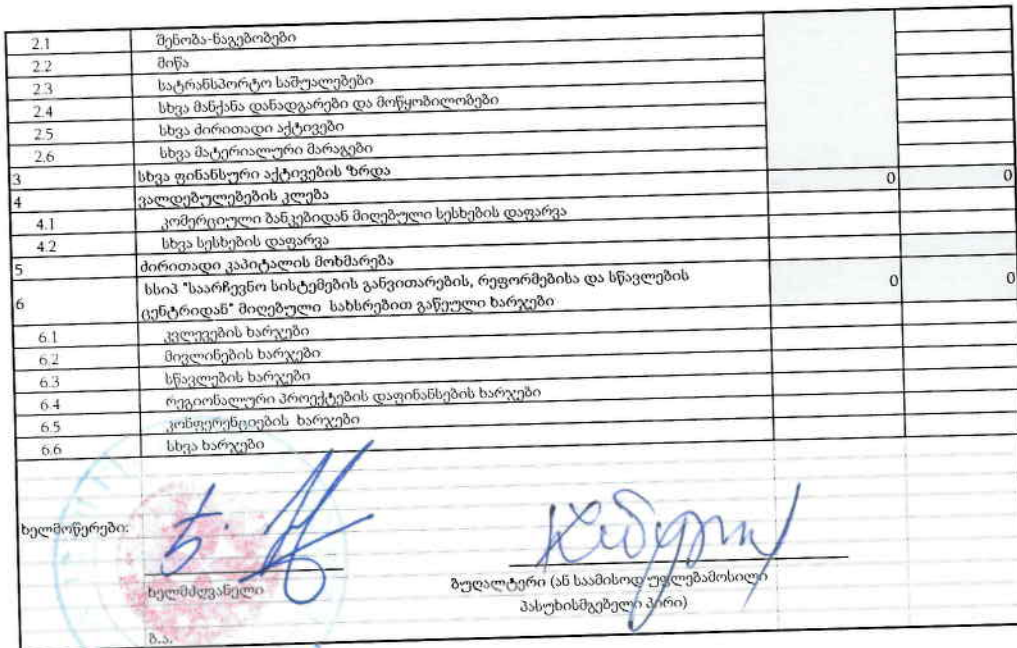 2.1 შენობა-ნაგებობები
2.2 მიწა
2.3 სატრანსპორტო საშუალებები
2.4 სხვა მანქანა დანადგარები და მოწყობილობები
2.5 სხვა ძირითადი აქტივები
2.6 სხვა მატერიალური მარაგები
3 სხვა ფინანსური აქტივების ზრდა
4 ვალდებულებების კლება 0 0
4.1 კომერციული ბანკებიდან მიღებული სესხების დაფარვა
4.2 სხვა სესხების დაფარვა
5 ძირითადი კაპიტალის მოხმარება
სსიპ "საარჩევნო სისტემების განვითარების, რეფორმებისა და სწავლების
6 ცენტრიდან" მიღებული სახსრებით გაწეული ხარჯები 0 0
6.1 კვლევების ხარჯები
6.2 მივლინების ხარჯები
6.3 სწავლების ხარჯები
6.4 რეგიონალური პროექტების დაფინანსების ხარჯები
6.5 კონფერენციების ხარჯები
6.6 სხვა ხარჯები
ხელმოწერები:
ხელმძღვანელი
ბუღალტერი (ან საამისოდ უფლებამოსილი
პასუხისმგებელი პირი)
ბ.ა.